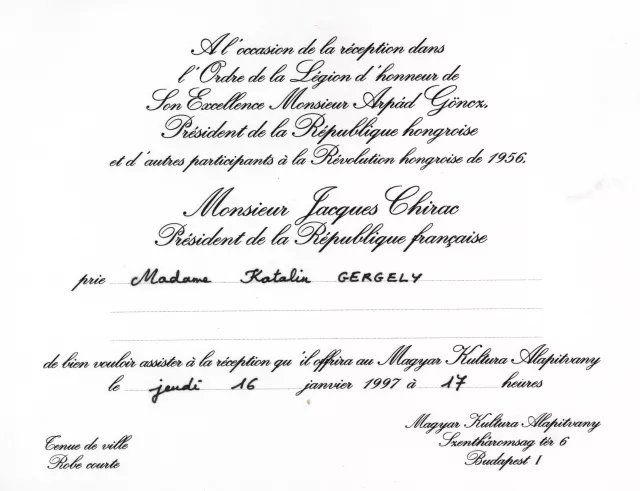 A l'occasion de la réception dans
l'Ordre de la Légion d'honneur de
Son Excellence Monsieur Arpád Göncz,
Président de la République hongroise
et d'autres participants à la Révolution hongroise de 1956,
Monsieur Jacques Chirac
Président de la République française
prie Madame Katalin GERGELY
de bien vouloir assister à la réception qu'il offrira au Magyar Kultura Alapitvany
le jeudi 16 janvier 1997 à 17 heures
Magyar Kultura Alapitvany
Szentháromsag tér 6
Budapest I
Tenue de ville
Robe courte